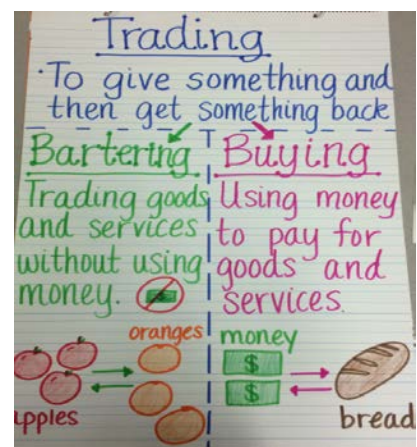 Trading
·To give something and
then get something back
Bartering
Trading goods
and services
without using
money.
$
oranges
apples
Buying
Using money
to pay for
goods and
services.
money
$
$
bread